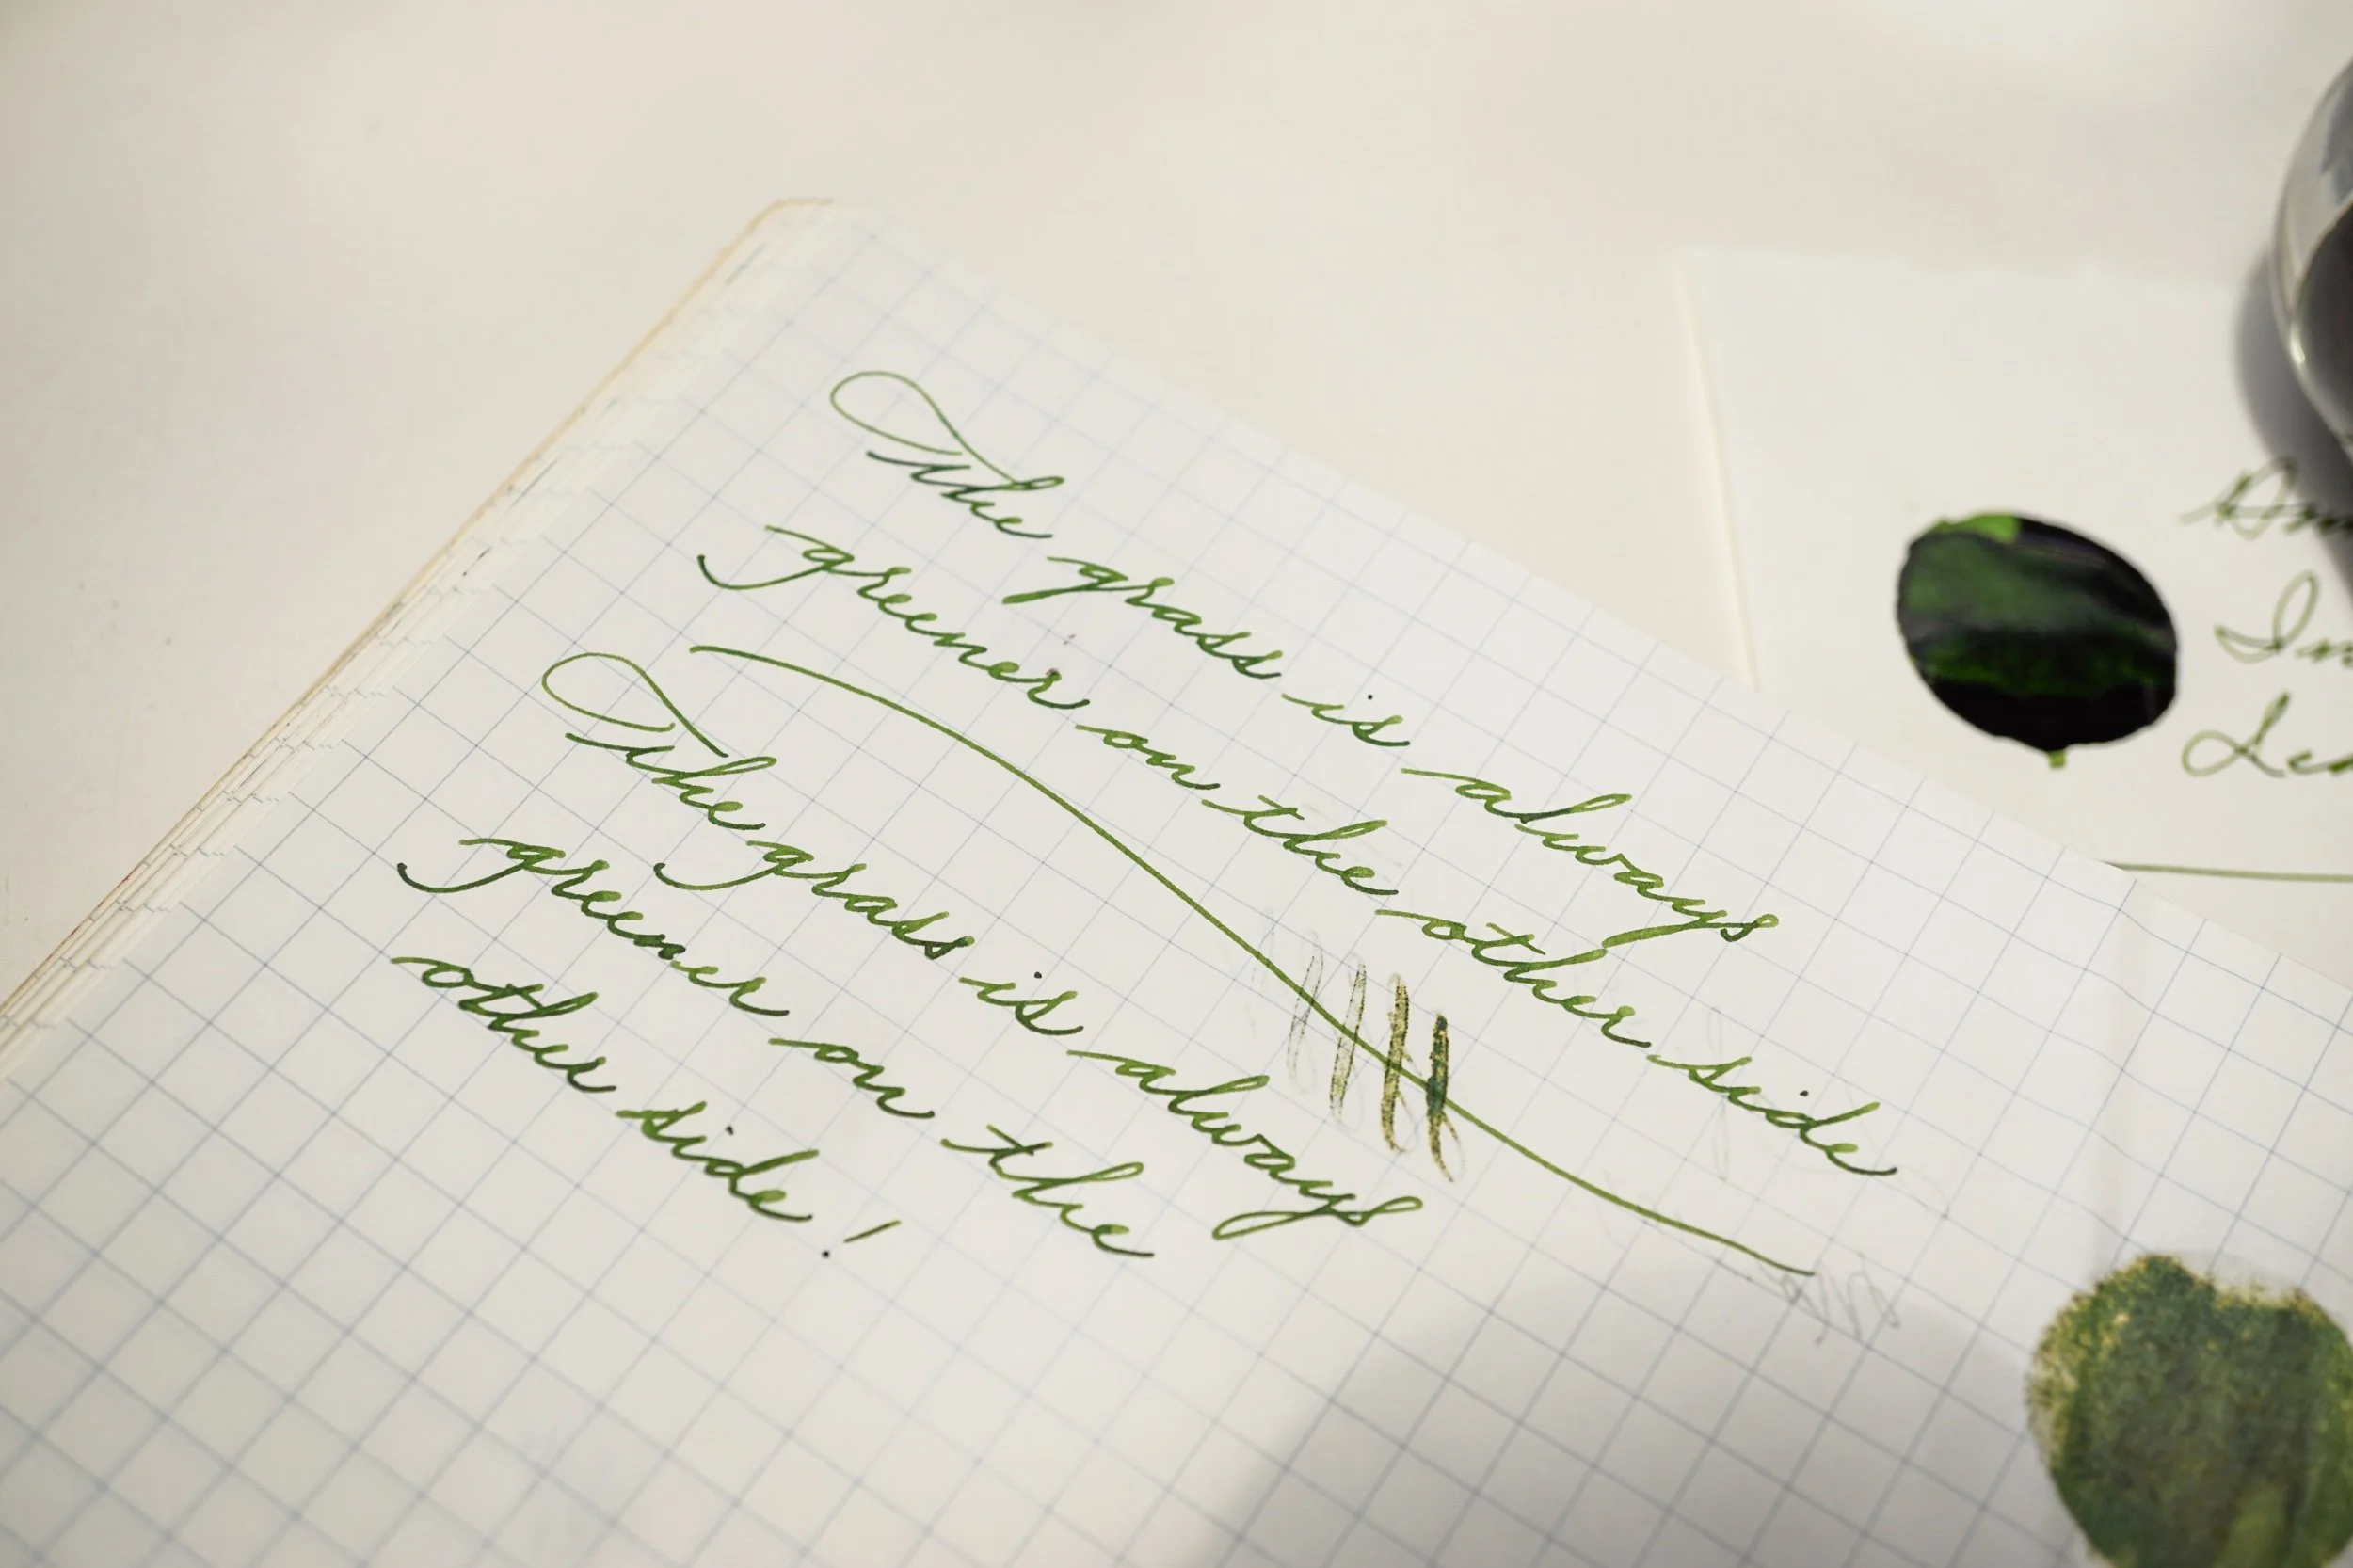 The grass is always
greener on the other side
The grass is always
greener on the
other side!